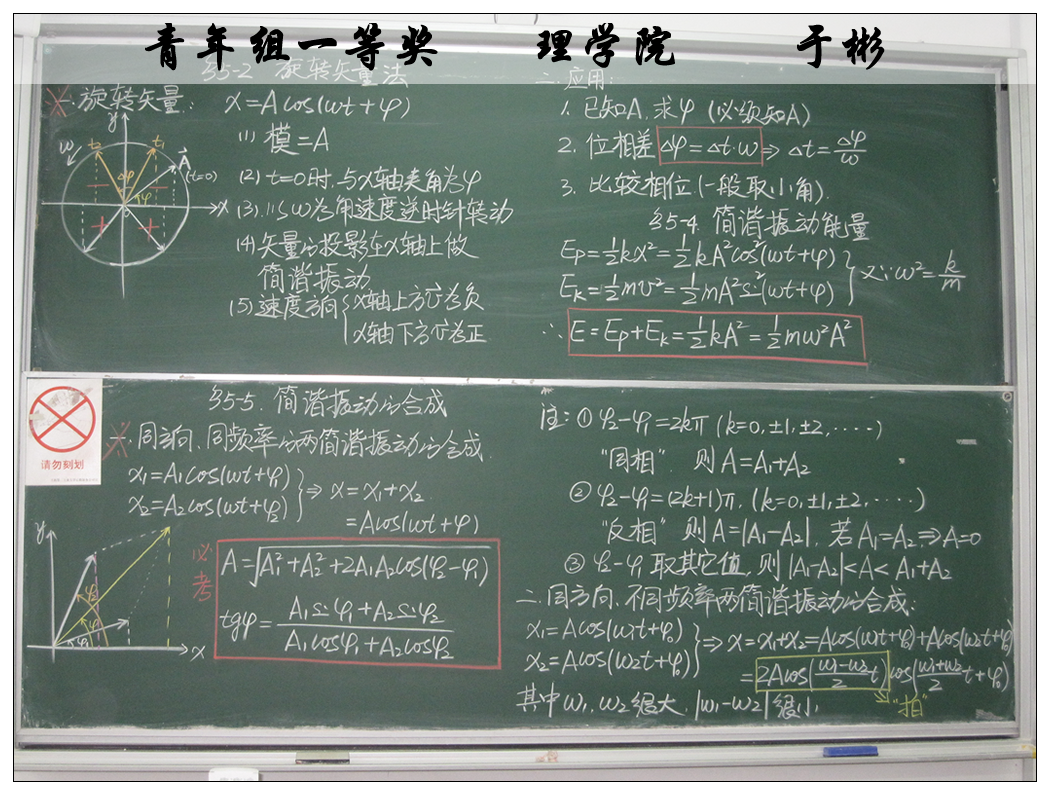 青年组一等奖 理学院 于彬
§5-2 旋转矢量法
一.旋转矢量:
x=Acos(ωt+φ)
(1) 模=A
(2) t=0时,与x轴夹角为φ
(3).以ω为角速度逆时针转动
(4)矢量的投影在x轴上做
简谐振动
(5)速度方向{x轴上方v为负
x轴下方v为正
y
ω
t₂
t₁
A
(t=0)
Δφ
φ
x
二.应用:
1.已知A,求φ (必须知A)
2.位相差 Δφ=Δt·ω ⇒ Δt=Δφ/ω
3.比较相位(一般取小角).
§5-4.简谐振动能量
Eₚ=½kx²=½kA²cos²(ωt+φ)
Eₖ=½mv²=½mA²si²(ωt+φ)
} 又∵ω²=k/m
∴ E=Eₚ+Eₖ=½kA²=½mω²A²
请勿刻划
§5-5.简谐振动的合成
一.同方向.同频率的两简谐振动的合成.
x₁=A₁cos(ωt+φ₁)
x₂=A₂cos(ωt+φ₂)
} ⇒ x=x₁+x₂
=Acos(ωt+φ)
必考
A=√(A₁²+A₂²+2A₁A₂cos(φ₂-φ₁))
tgφ=(A₁si φ₁+A₂si φ₂)/(A₁cosφ₁+A₂cosφ₂)
y
φ₂
φ
φ₁
x
注:① φ₂-φ₁=2kπ (k=0,±1,±2,·····)
"同相". 则A=A₁+A₂
② φ₂-φ₁=(2k+1)π, (k=0,±1,±2,·····)
"反相" 则A=|A₁-A₂|, 若A₁=A₂⇒A=0
③ φ₂-φ₁取其它值,则|A₁-A₂|<A<A₁+A₂
二.同方向.不同频率两简谐振动的合成:
x₁=Acos(ω₁t+φ₀)
x₂=Acos(ω₂t+φ₀)
} ⇒ x=x₁+x₂=Acos(ω₁t+φ₀)+Acos(ω₂t+φ₀)
=2Acos((ω₁-ω₂)/2 t)cos((ω₁+ω₂)/2 t+φ₀)
其中ω₁,ω₂很大.|ω₁-ω₂|很小.
"拍"